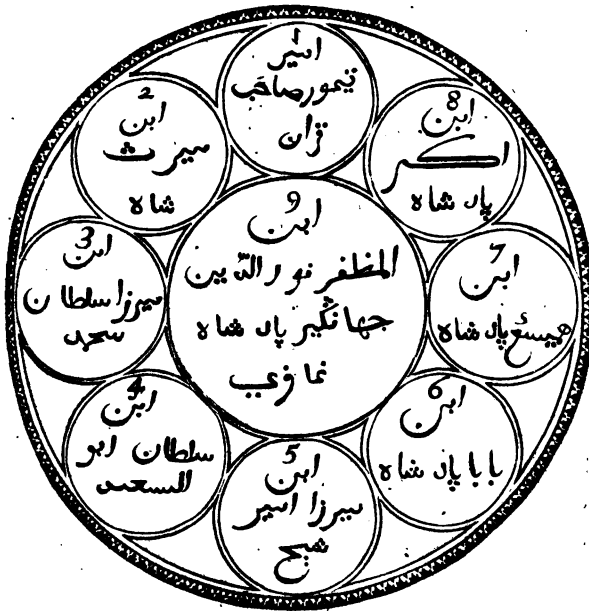 1
امير
تيمور صاحب
قران
2
ابن
ميرث
شاه
3
ابن
ميرزا سلطان
محمد
4
ابن
سلطان ابو
السعيد
5
ابن
ميرزا امير
شيخ
6
ابن
بابا پاد شاه
7
ابن
پاد شاه
8
ابن
اكبر
پاد شاه
9
ابن
المظفر نور الدين
جهانگير پاد شاه
نمازي